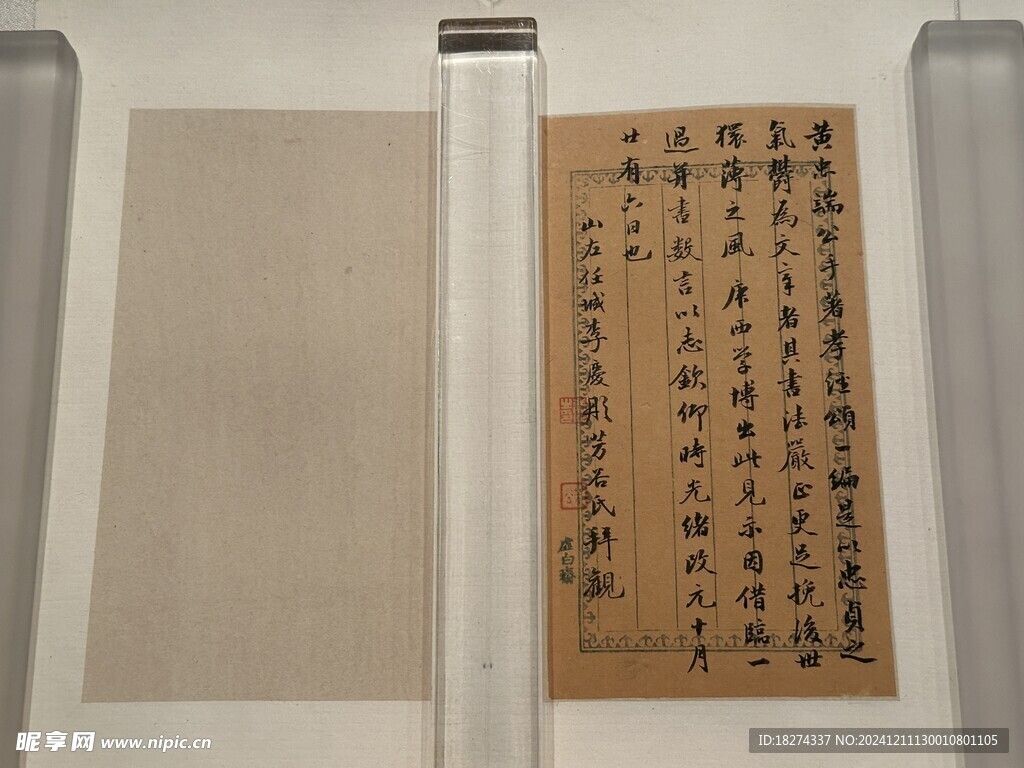 黄忠端公手著孝經頌一編是以忠貞之
氣欝為文章者其書法嚴正更足挽後世
獧薄之風 席西学博出此見示因借臨一
過并書数言以志欽仰時光緒改元十月
廿有六日也
山左任城李慶彤芳谷氏拜觀
虚白齋
昵享网 www.nipic.cn
ID:18274337 NO:20241211130010801105